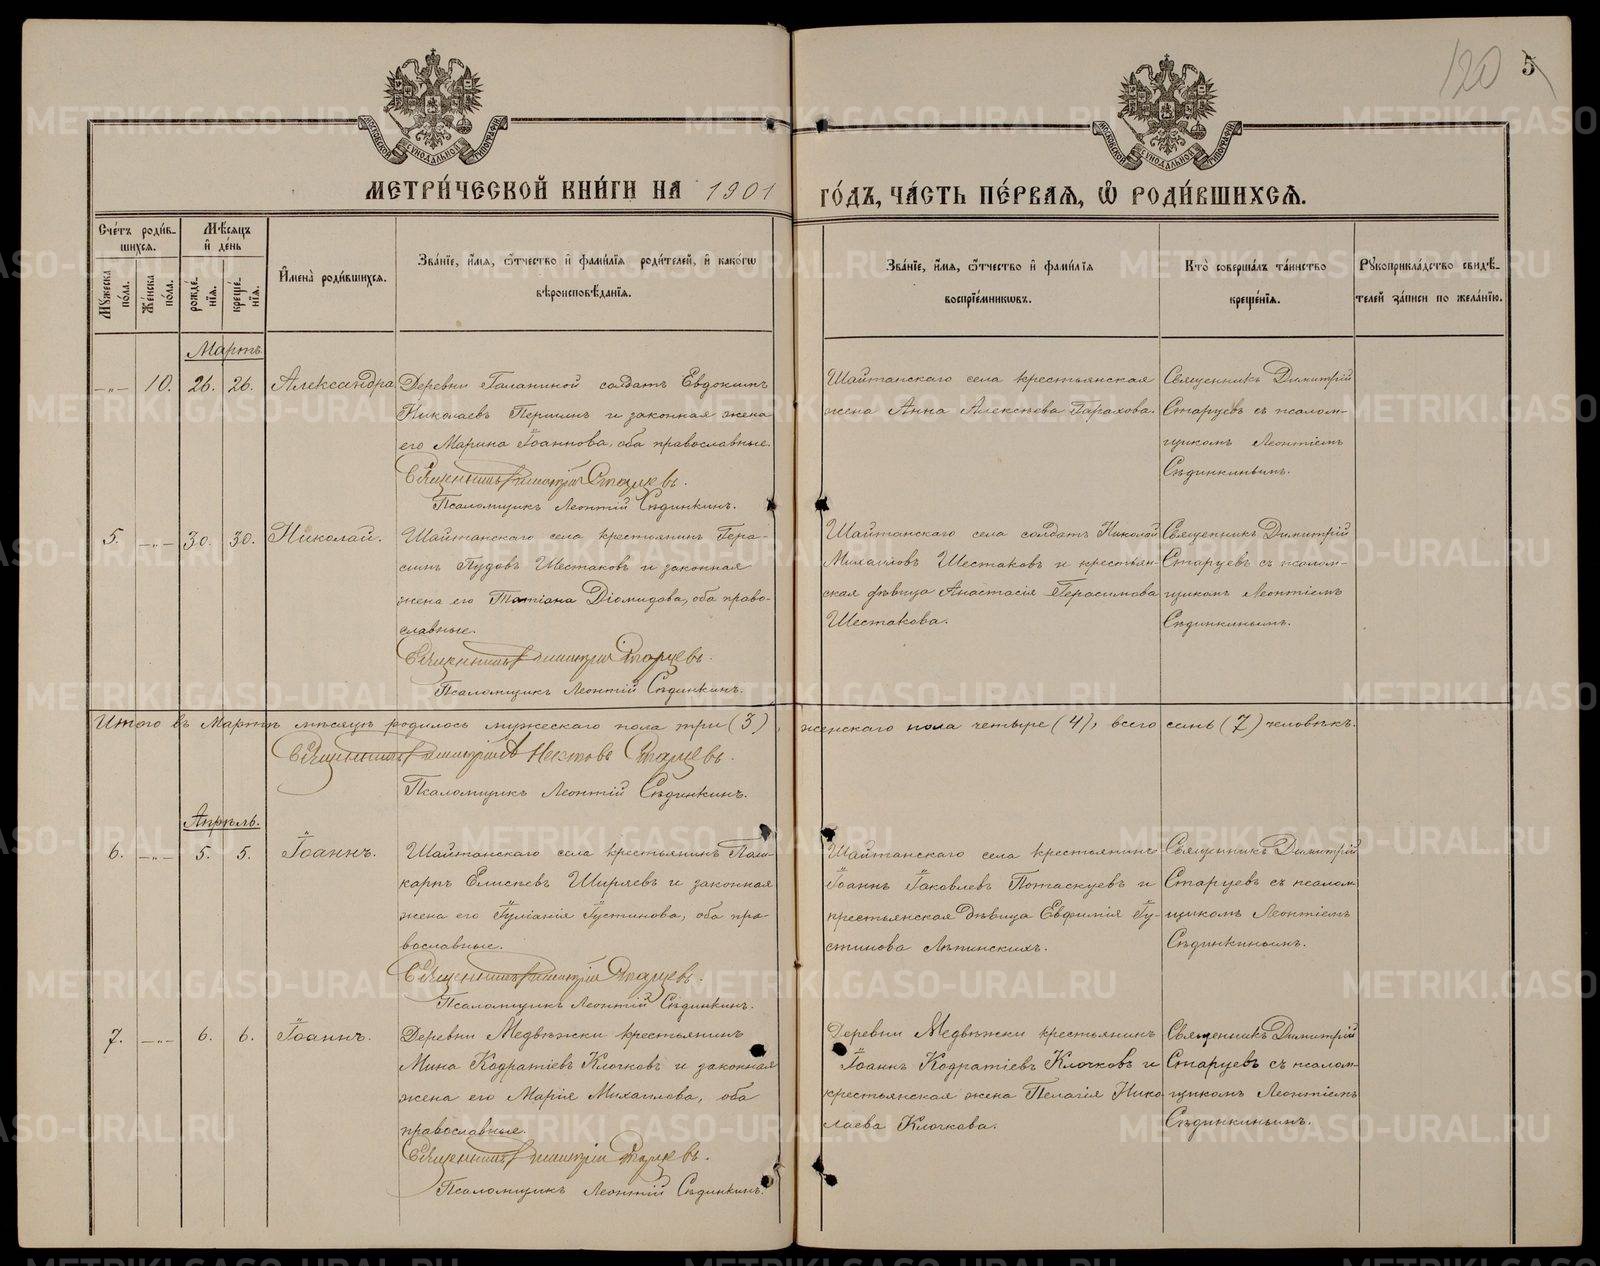 120 5
МЕТРИ́ЧЕСКОЙ КНИ́ГИ НА 1901 ГО́ДЪ, ЧА́СТЬ ПЕ́РВАѦ, Ѽ РОДИ́ВШИХСѦ.
МОСКОВСКОЙ СѴНОДАЛЬНОЙ ТИПОГРАФІИ
МОСКОВСКОЙ СѴНОДАЛЬНОЙ ТИПОГРАФІИ
Сче́тъ роди́в-
шихся.
Мꙋжеска по́ла.
Же́нска по́ла.
Мѣ́сяцъ
и҆ де́нь
рожде́-
нїя.
креще́-
нїя.
И҆мена̀ роди́вшихся.
Зва́нїе, и҆́мя, ѻ҆́тчество и҆ фами́лїя роди́телей, и҆ како́гѡ
вѣроисповѣ́данїя.
Зва́нїе, и҆́мя, ѻ҆́тчество и҆ фами́лїя
воспрїе́мниковъ.
Кто̀ соверша́лъ та́инство
креще́нїя.
Рꙋкоприкла́дство свидѣ́-
телей за́писи по жела́нїю.
Мартъ
—„— 10. 26. 26. Александра
Деревни Галаниной солдатъ Евдокимъ
Николаевъ Першинъ и законная жена
его Марина Іоаннова, оба православные.
Священникъ Димитрій Старцевъ.
Псаломщикъ Леонтій Сѣдинкинъ.
Шайтанскаго села крестьянская
жена Анна Алексѣева Тарахова.
Священникъ Димитрій
Старцевъ съ псалом-
щикомъ Леонтіемъ
Сѣдинкинымъ.
5. —„— 30. 30. Николай.
Шайтанскаго села крестьянинъ Гера-
симъ Пудовъ Шестаковъ и законная
жена его Татіана Діомидова, оба право-
славные.
Священникъ Димитрій Старцевъ.
Псаломщикъ Леонтій Сѣдинкинъ.
Шайтанскаго села солдатъ Николай
Михаиловъ Шестаковъ и крестьян-
ская дѣвица Анастасія Герасимова
Шестакова.
Священникъ Димитрій
Старцевъ съ псалом-
щикомъ Леонтіемъ
Сѣдинкинымъ.
Итого въ Мартѣ мѣсяцѣ родилось мужескаго пола три (3), женскаго пола четыре (4), всего семь (7) человѣкъ.
Священникъ Димитрій Старцевъ.
Псаломщикъ Леонтій Сѣдинкинъ.
Апрѣль.
6. —„— 5. 5. Іоаннъ.
Шайтанскаго села крестьянинъ Поли-
карпъ Елисѣевъ Ширяевъ и законная
жена его Іуліанія Іустинова, оба пра-
вославные.
Священникъ Димитрій Старцевъ.
Псаломщикъ Леонтій Сѣдинкинъ.
Шайтанскаго села крестьянинъ
Іоаннъ Іаковлевъ Потаскуевъ и
крестьянская дѣвица Евфимія Іу-
стинова Ляпинскихъ.
Священникъ Димитрій
Старцевъ съ псалом-
щикомъ Леонтіемъ
Сѣдинкинымъ.
7. —„— 6. 6. Іоаннъ.
Деревни Медвѣжки крестьянинъ
Мина Кодратіевъ Клочковъ и законная
жена его Марія Михаилова, оба
православные.
Священникъ Димитрій Старцевъ.
Псаломщикъ Леонтій Сѣдинкинъ.
Деревни Медвѣжки крестьянинъ
Іоаннъ Кодратіевъ Клочковъ и
крестьянская жена Пелагія Нико-
лаева Клочкова.
Священникъ Димитрій
Старцевъ съ псалом-
щикомъ Леонтіемъ
Сѣдинкинымъ.
METRIKI.GASO-URAL.RU